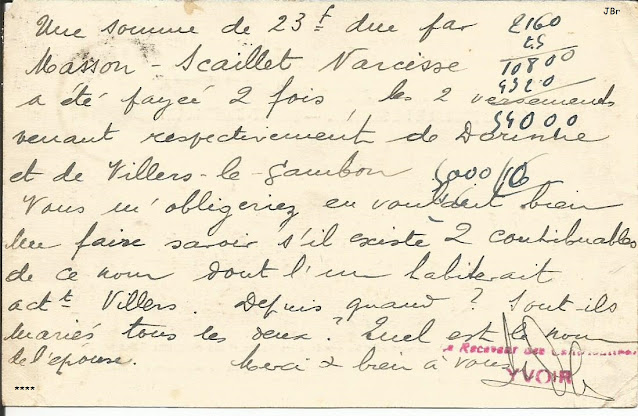 JBr
Une somme de 23 f due par
2160
25
Masson - Scaillet Narcisse
10800
4320
a été payée 2 fois, les 2 versements
54000
venant respectivement de Dorinne
et de Villers-le-Gambon
5000
Vous m'obligeriez en voulant bien
me faire savoir s'il existe 2 contribuables
de ce nom dont l'un habiterait
actt Villers. Depuis quand ? Sont-ils
mariés tous les deux ? Quel est le nom
de l'épouse. Merci & bien à vous
Receveur des Contributions
YVOIR
****